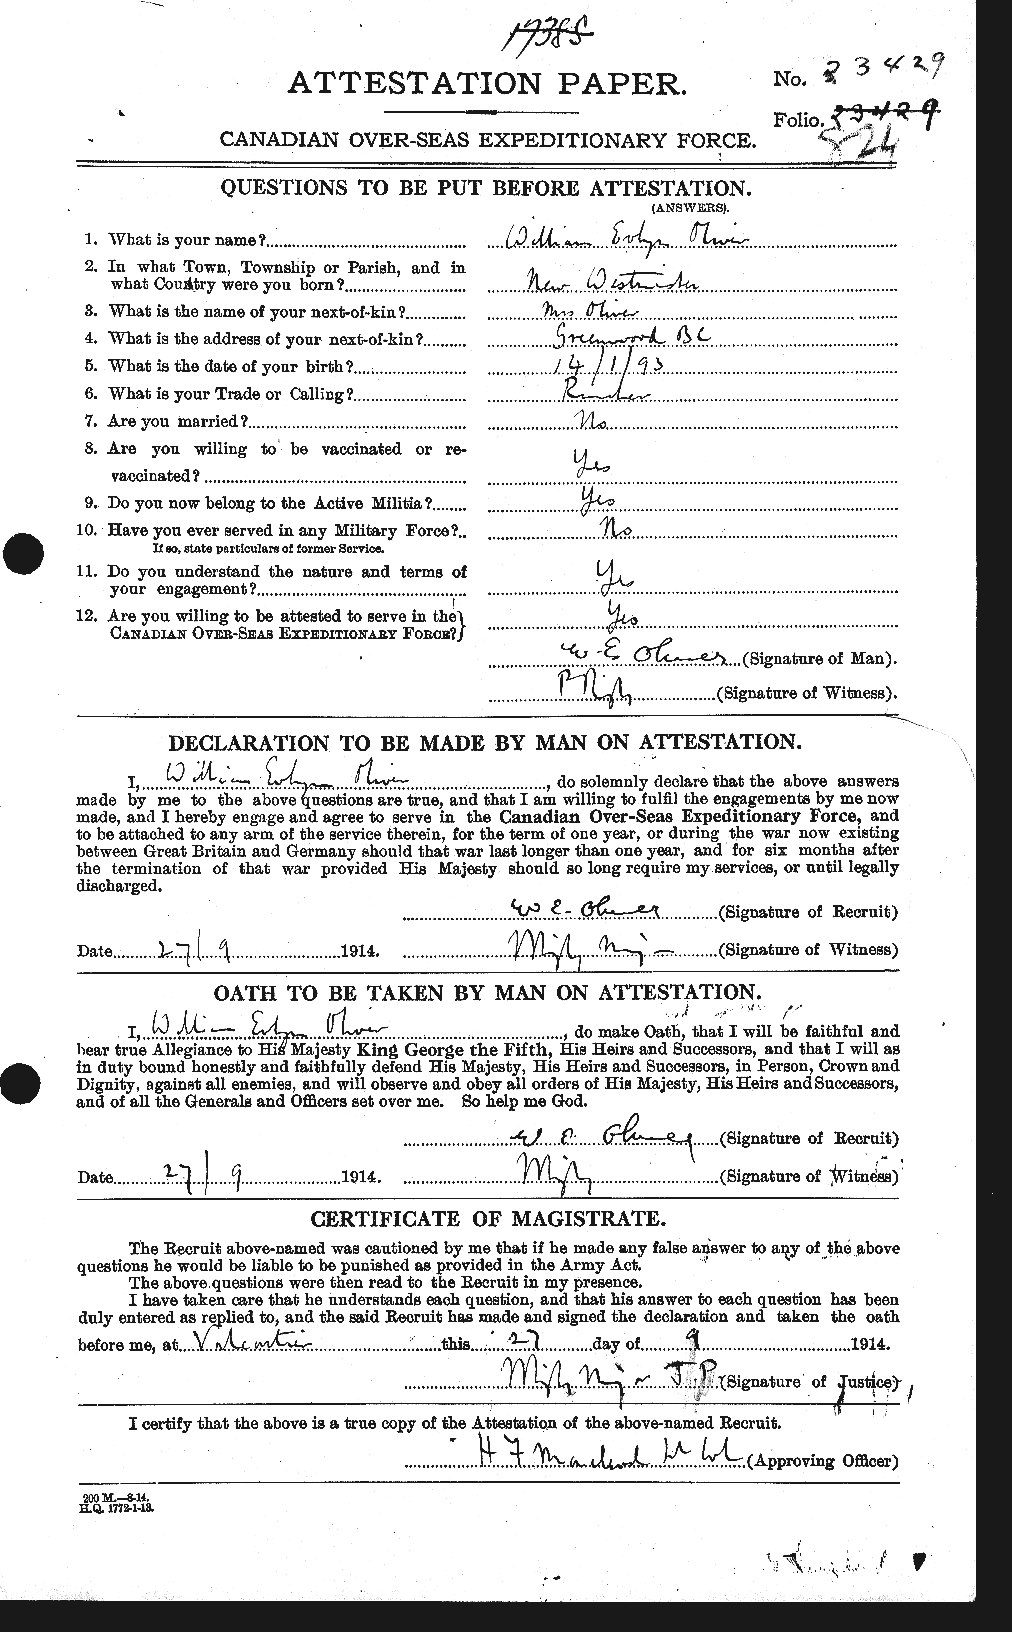 19385
ATTESTATION PAPER.
No. 23429
Folio. 23429
S-24
CANADIAN OVER-SEAS EXPEDITIONARY FORCE.
QUESTIONS TO BE PUT BEFORE ATTESTATION.
(ANSWERS).
1. What is your name? William Evlyn Oliver
2. In what Town, Township or Parish, and in
what Country were you born? New Westminster
3. What is the name of your next-of-kin? Mrs Oliver
4. What is the address of your next-of-kin? Greenwood BC
5. What is the date of your birth? 14/1/93
6. What is your Trade or Calling? Rancher
7. Are you married? No
8. Are you willing to be vaccinated or re-
vaccinated? Yes
9. Do you now belong to the Active Militia? Yes
10. Have you ever served in any Military Force? No
If so, state particulars of former Service.
11. Do you understand the nature and terms of
your engagement? Yes
12. Are you willing to be attested to serve in the
CANADIAN OVER-SEAS EXPEDITIONARY FORCE? Yes
W E Oliver (Signature of Man).
(Signature of Witness).
DECLARATION TO BE MADE BY MAN ON ATTESTATION.
I, William Evlyn Oliver, do solemnly declare that the above answers
made by me to the above questions are true, and that I am willing to fulfil the engagements by me now
made, and I hereby engage and agree to serve in the Canadian Over-Seas Expeditionary Force, and
to be attached to any arm of the service therein, for the term of one year, or during the war now existing
between Great Britain and Germany should that war last longer than one year, and for six months after
the termination of that war provided His Majesty should so long require my services, or until legally
discharged.
W E Oliver (Signature of Recruit)
Date 27/9 1914. (Signature of Witness)
OATH TO BE TAKEN BY MAN ON ATTESTATION.
I, William Evlyn Oliver, do make Oath, that I will be faithful and
bear true Allegiance to His Majesty King George the Fifth, His Heirs and Successors, and that I will as
in duty bound honestly and faithfully defend His Majesty, His Heirs and Successors, in Person, Crown and
Dignity, against all enemies, and will observe and obey all orders of His Majesty, His Heirs and Successors,
and of all the Generals and Officers set over me. So help me God.
W E Oliver (Signature of Recruit)
Date 27/9 1914. (Signature of Witness)
CERTIFICATE OF MAGISTRATE.
The Recruit above-named was cautioned by me that if he made any false answer to any of the above
questions he would be liable to be punished as provided in the Army Act.
The above questions were then read to the Recruit in my presence.
I have taken care that he understands each question, and that his answer to each question has been
duly entered as replied to, and the said Recruit has made and signed the declaration and taken the oath
before me, at Valcartier this 27 day of 9 1914.
J.P. (Signature of Justice)
I certify that the above is a true copy of the Attestation of the above-named Recruit.
H F Macleod Lt Col (Approving Officer)
200 M.—8-14.
H.Q. 1772-1-13.